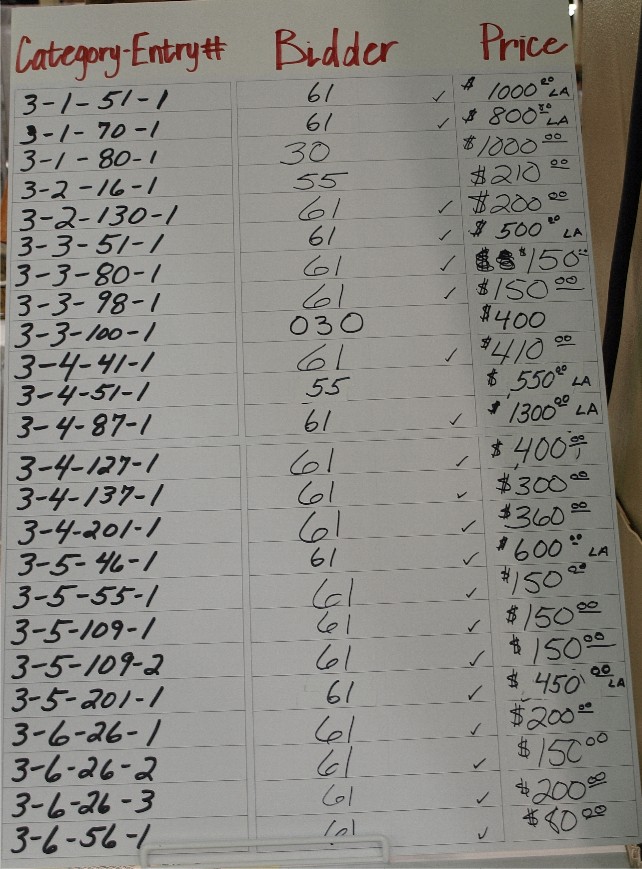 Category-Entry# Bidder Price
3-1-51-1 61 ✓ $ 1000.00 LA
3-1-70-1 61 ✓ $ 800.00 LA
3-1-80-1 30 $1000.00
3-2-16-1 55 $210.00
3-2-130-1 61 ✓ $200.00
3-3-51-1 61 ✓ $ 500.00 LA
3-3-80-1 61 ✓ $150.00
3-3-98-1 61 ✓ $150.00
3-3-100-1 030 $400
3-4-41-1 61 ✓ $410.00
3-4-51-1 55 $ 550.00 LA
3-4-87-1 61 ✓ $ 1300.00 LA
3-4-127-1 61 ✓ $ 400.00
3-4-137-1 61 ✓ $300.00
3-4-201-1 61 ✓ $360.00
3-5-46-1 61 ✓ $600.00 LA
3-5-55-1 61 ✓ $150.00
3-5-109-1 61 ✓ $150.00
3-5-109-2 61 ✓ $150.00
3-5-201-1 61 ✓ $ 450.00 LA
3-6-26-1 61 ✓ $200.00
3-6-26-2 61 ✓ $150.00
3-6-26-3 61 ✓ $200.00
3-6-56-1 61 ✓ $80.00